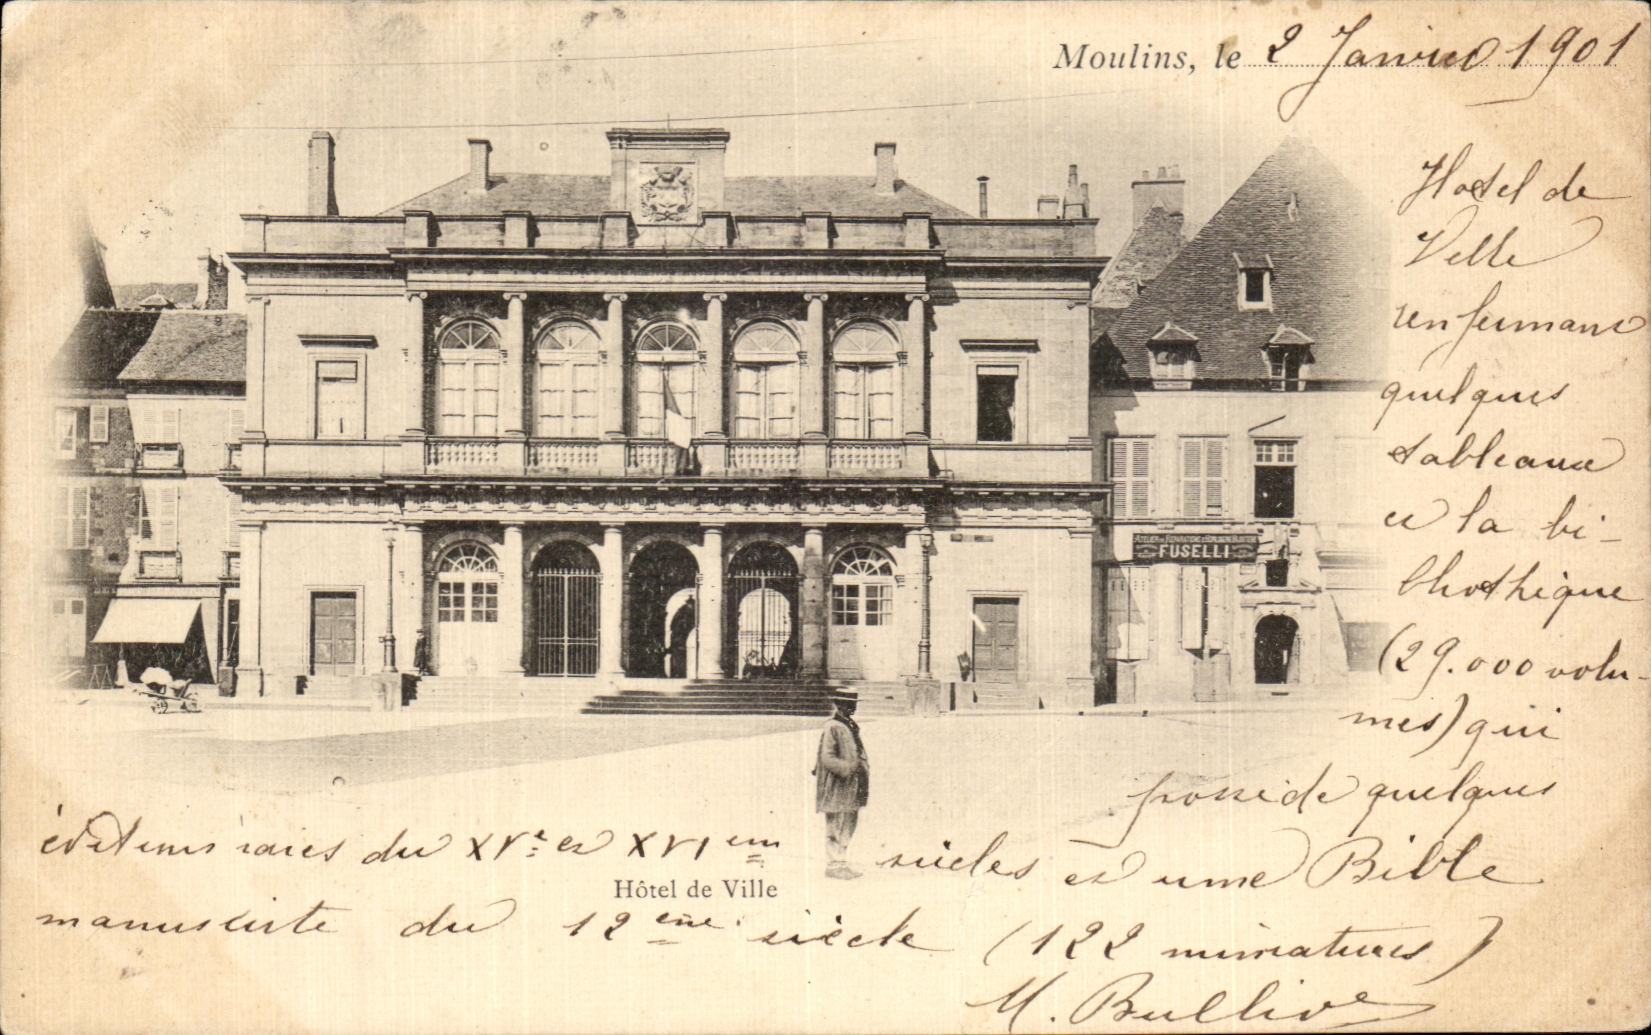 Moulins, le 2 Janvier 1901
Hotel de
Ville
renfermant
quelques
tableaux
et la bi-
bliothèque
(29.000 volu-
mes) qui
possède quelques
éditions rares du XVe et XVIeme siècles et une Bible
manuscrite du 12ème siècle (122 miniatures)
M.
Hôtel de Ville
ATELIER DE RÉPARATIONS
FUSELLI